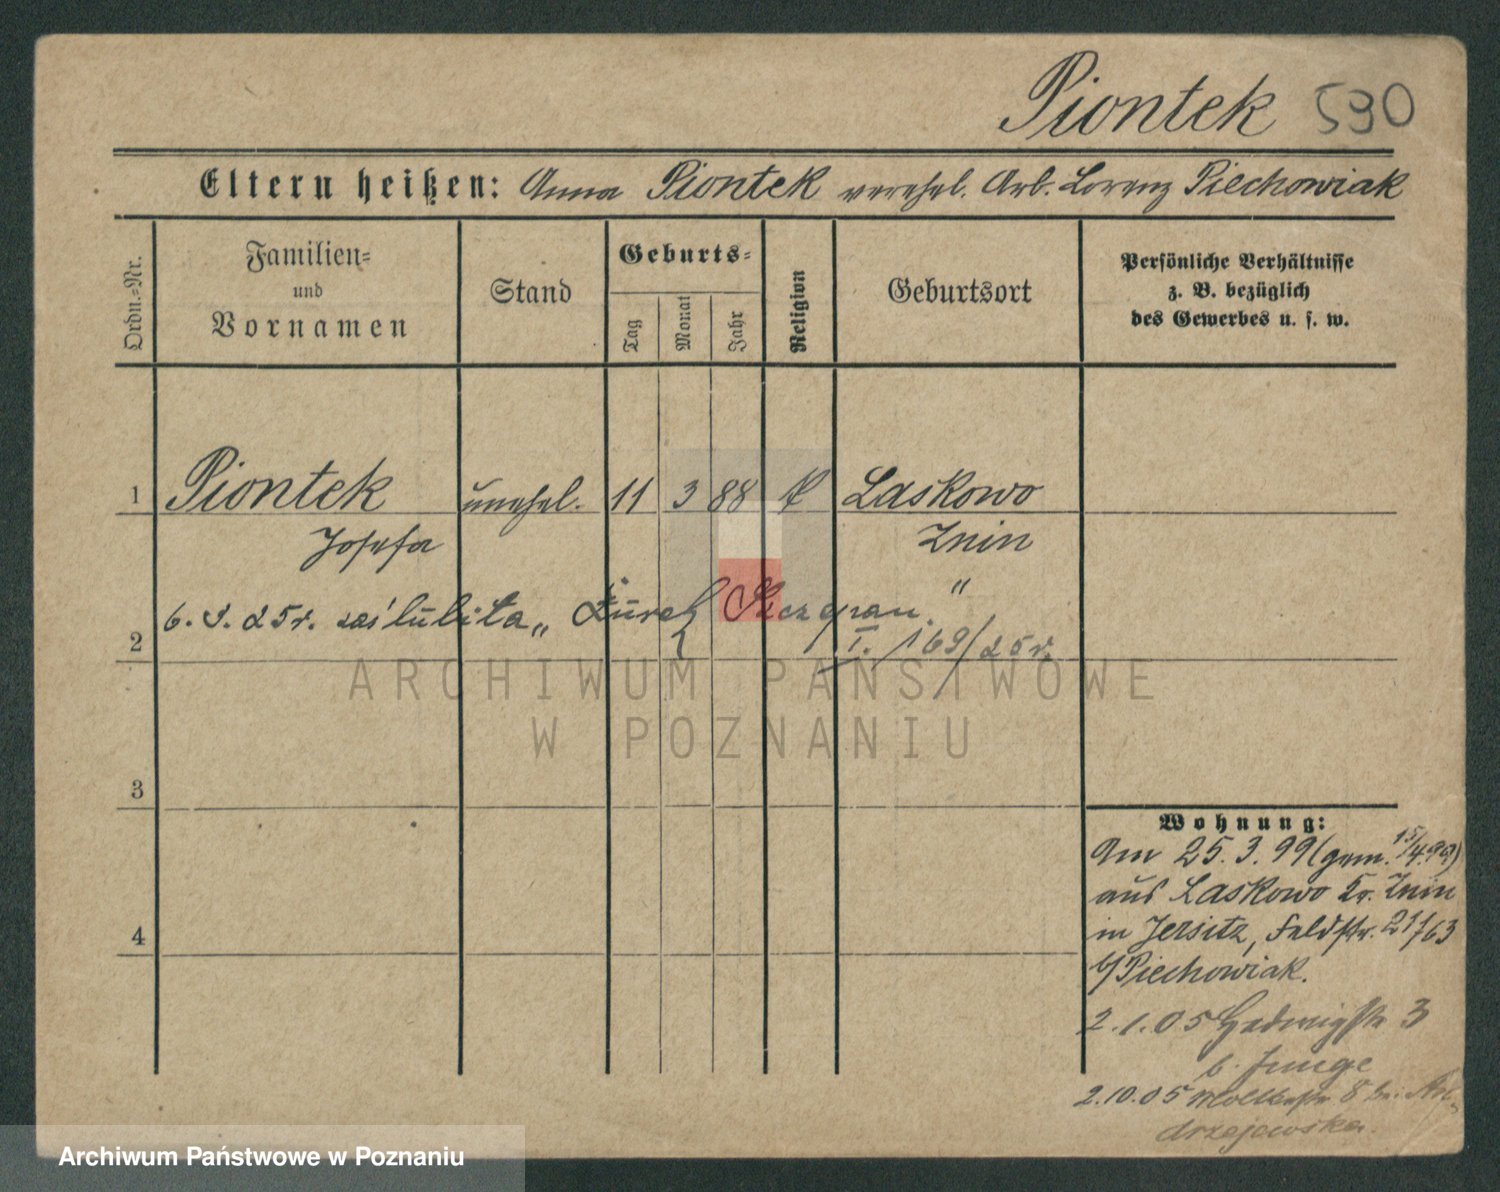 Piontek 590
Eltern heißen: Anna Piontek verehel. Arb. Lorenz Piechowiak
Ordn.-Nr.
Familien-
und
Vornamen
Stand
Geburts-
Tag
Monat
Jahr
Religion
Geburtsort
Persönliche Verhältnisse
z. B. bezüglich
des Gewerbes u. s. w.
1 Piontek unehel. 11 3 88 k Laskowo
Josefa Znin
"
6. 25r. zaślubiła
I. 169/25 r.
2
ARCHIWUM PAŃSTWOWE
W POZNANIU
3
4
Wohnung:
Am 25.3.99 (gem. 15/4.99)
aus Laskowo Kr. Znin
in Jersitz, Feldstr. 21/63
b/Piechowiak.
2.1.05 Hedwigstr 3
b. Junge
2.10.05 Moltkestr 8 bei An-
drzejewska.
Archiwum Państwowe w Poznaniu